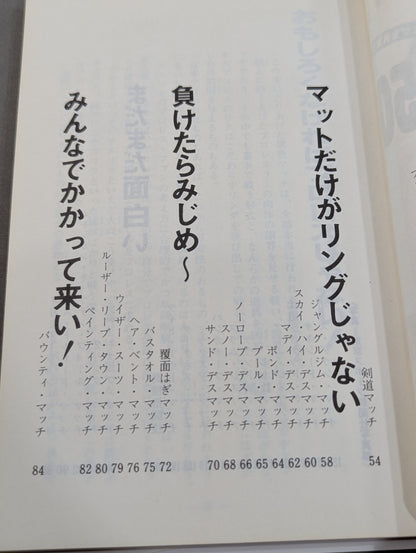 剣道マッチ 54
マットだけがリングじゃない
ジャングルジム・マッチ 58
スカイ・ハイ・デスマッチ 60
マディ・デスマッチ 62
ポンド・マッチ 64
プール・マッチ 65
ノーロープ・デスマッチ 66
スノー・デスマッチ 68
サンド・デスマッチ 70
負けたらみじめ〜
覆面はぎマッチ 72
バスタオル・マッチ 75
ヘア・ベント・マッチ 76
ウイザー・スーツ・マッチ 79
ルーザー・リーブ・タウン・マッチ 80
ペインティング・マッチ 82
みんなでかかって来い！
バウンティ・マッチ 84